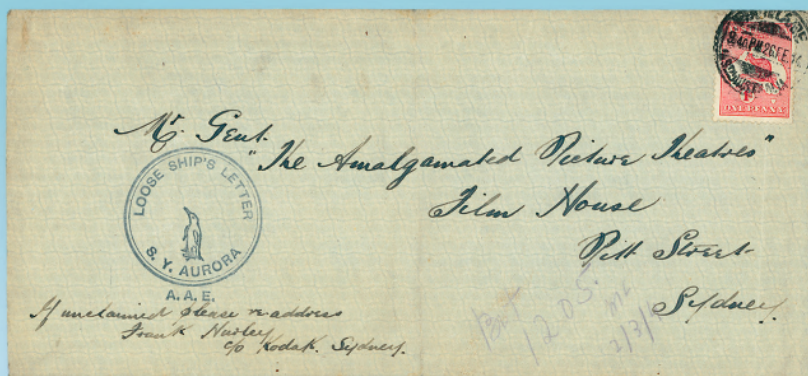 ADELAIDE
26 FE 14
ONE PENNY
Mr. Gent.
"The Amalgamated Picture Theatres"
Film House
Pitt Street
Sydney.
LOOSE SHIP'S LETTER
S. Y. AURORA
A. A. E.
If unclaimed please re-address
Frank Hurley
c/o Kodak. Sydney.
1205.
2/3/